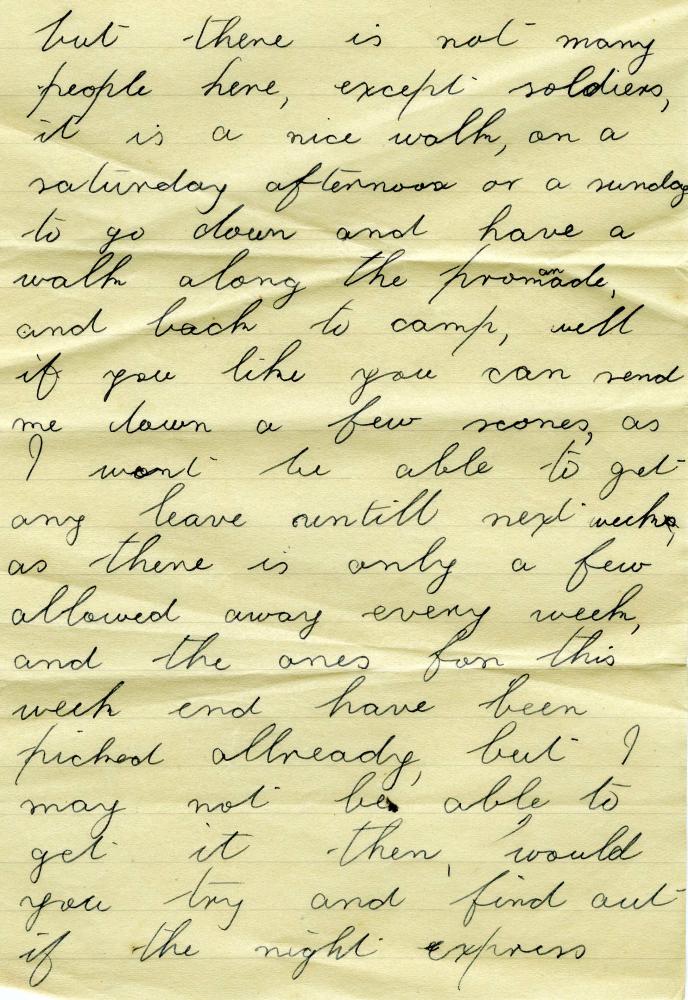 but there is not many
people here, except soldiers,
it is a nice walk, on a
saturday afternoon or a sunday
to go down and have a
walk along the promanade,
and back to camp, well
if you like you can send
me down a few scones, as
I wont be able to get
any leave untill next week,
as there is only a few
allowed away every week,
and the ones for this
week end have been
picked allready, but I
may not be able to
get it then, would
you try and find out
if the night express